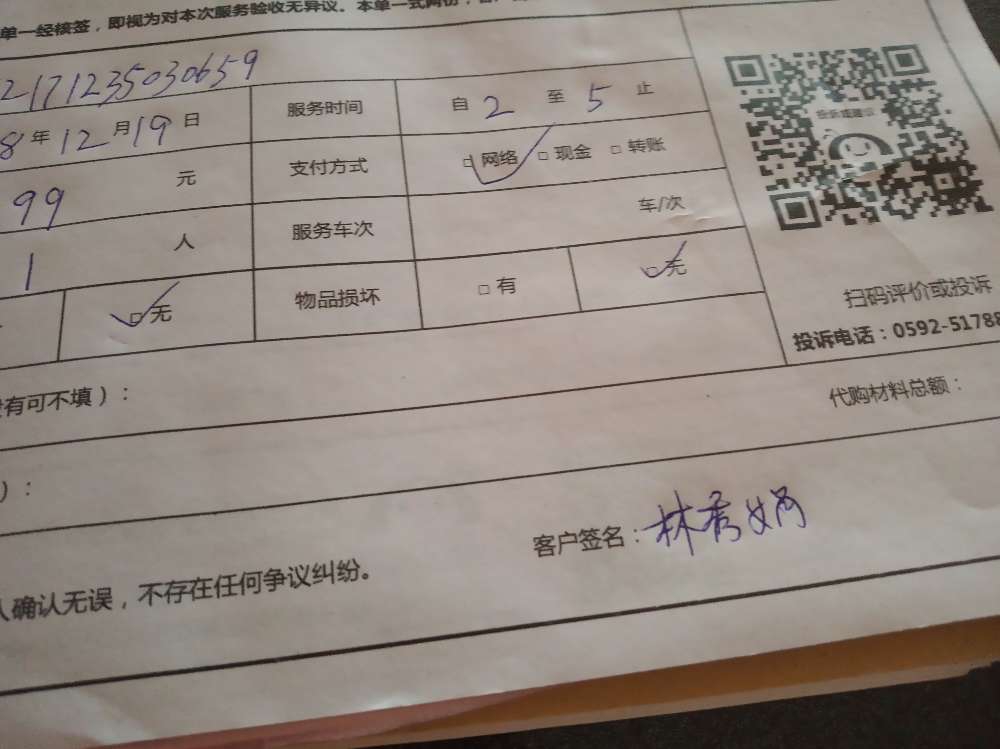 单一经核签，即视为对本次服务验收无异议。本单一式两份，
2171235030659
8年12月19日 服务时间 自 2 至 5 止
99 元 支付方式 □网络 □现金 □转账
1 人 服务车次 车/次
□无 物品损坏 □有 □无
扫码评价或投诉
投诉电话：0592-51788
有可不填）：
代购材料总额：
）：
客户签名：林秀娟
人确认无误，不存在任何争议纠纷。